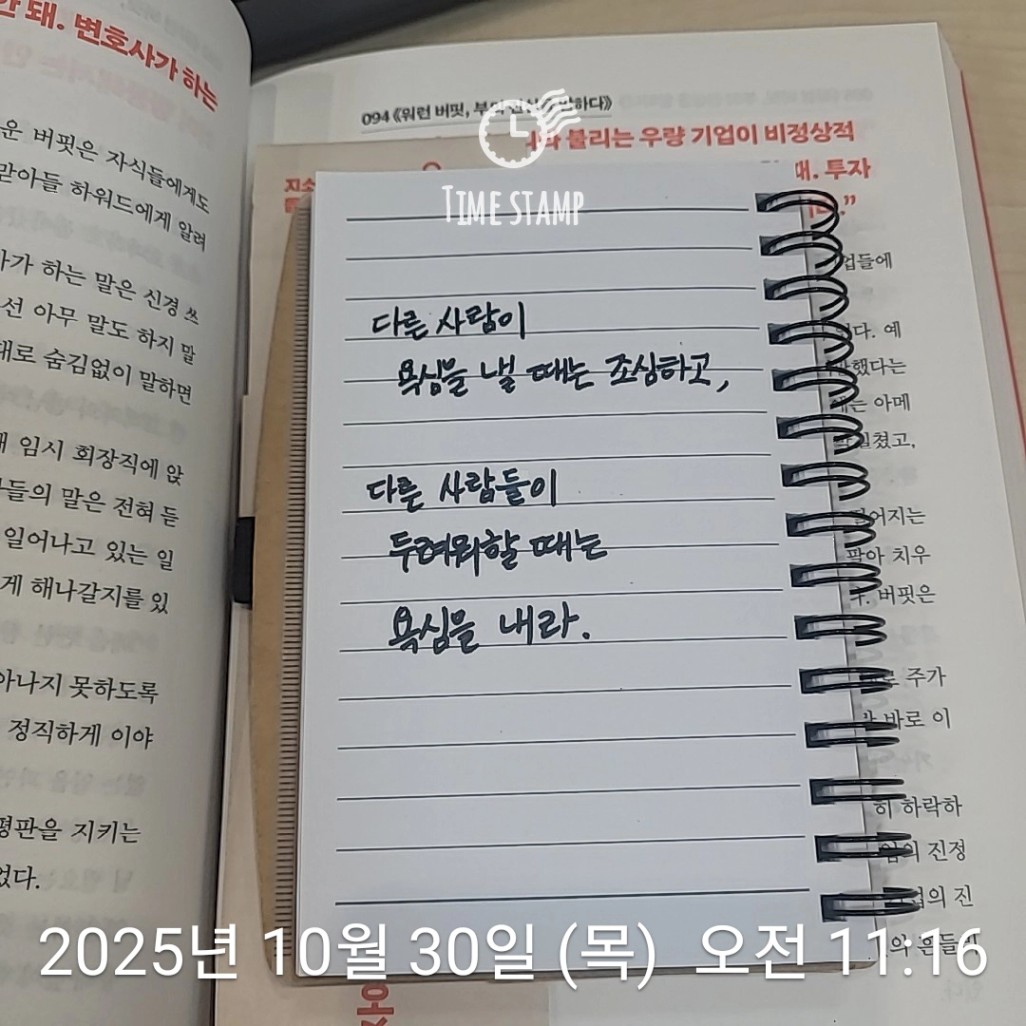 안 돼. 변호사가 하는
운 버핏은 자식들에게도
맏아들 하워드에게 알려
가 하는 말은 신경 쓰
선 아무 말도 하지 말
대로 숨김없이 말하면
임시 회장직에 앉
들의 말은 전혀 듣
일어나고 있는 일
게 해나갈지를 있
아나지 못하도록
정직하게 이야
평판을 지키는
었다.
094 《워런 버핏, 부의
불리는 우량 기업이 비정상적
투자
TIME STAMP
다른 사람이
욕심을 낼 때는 조심하고,
다른 사람들이
두려워할 때는
욕심을 내라.
업들에
다. 예
했다는
는 아메
일쳤고,
어지는
팔아 치우
버핏은
주가
바로 이
히 하락하
의 진정
의 진
2025년 10월 30일 (목) 오전 11:16